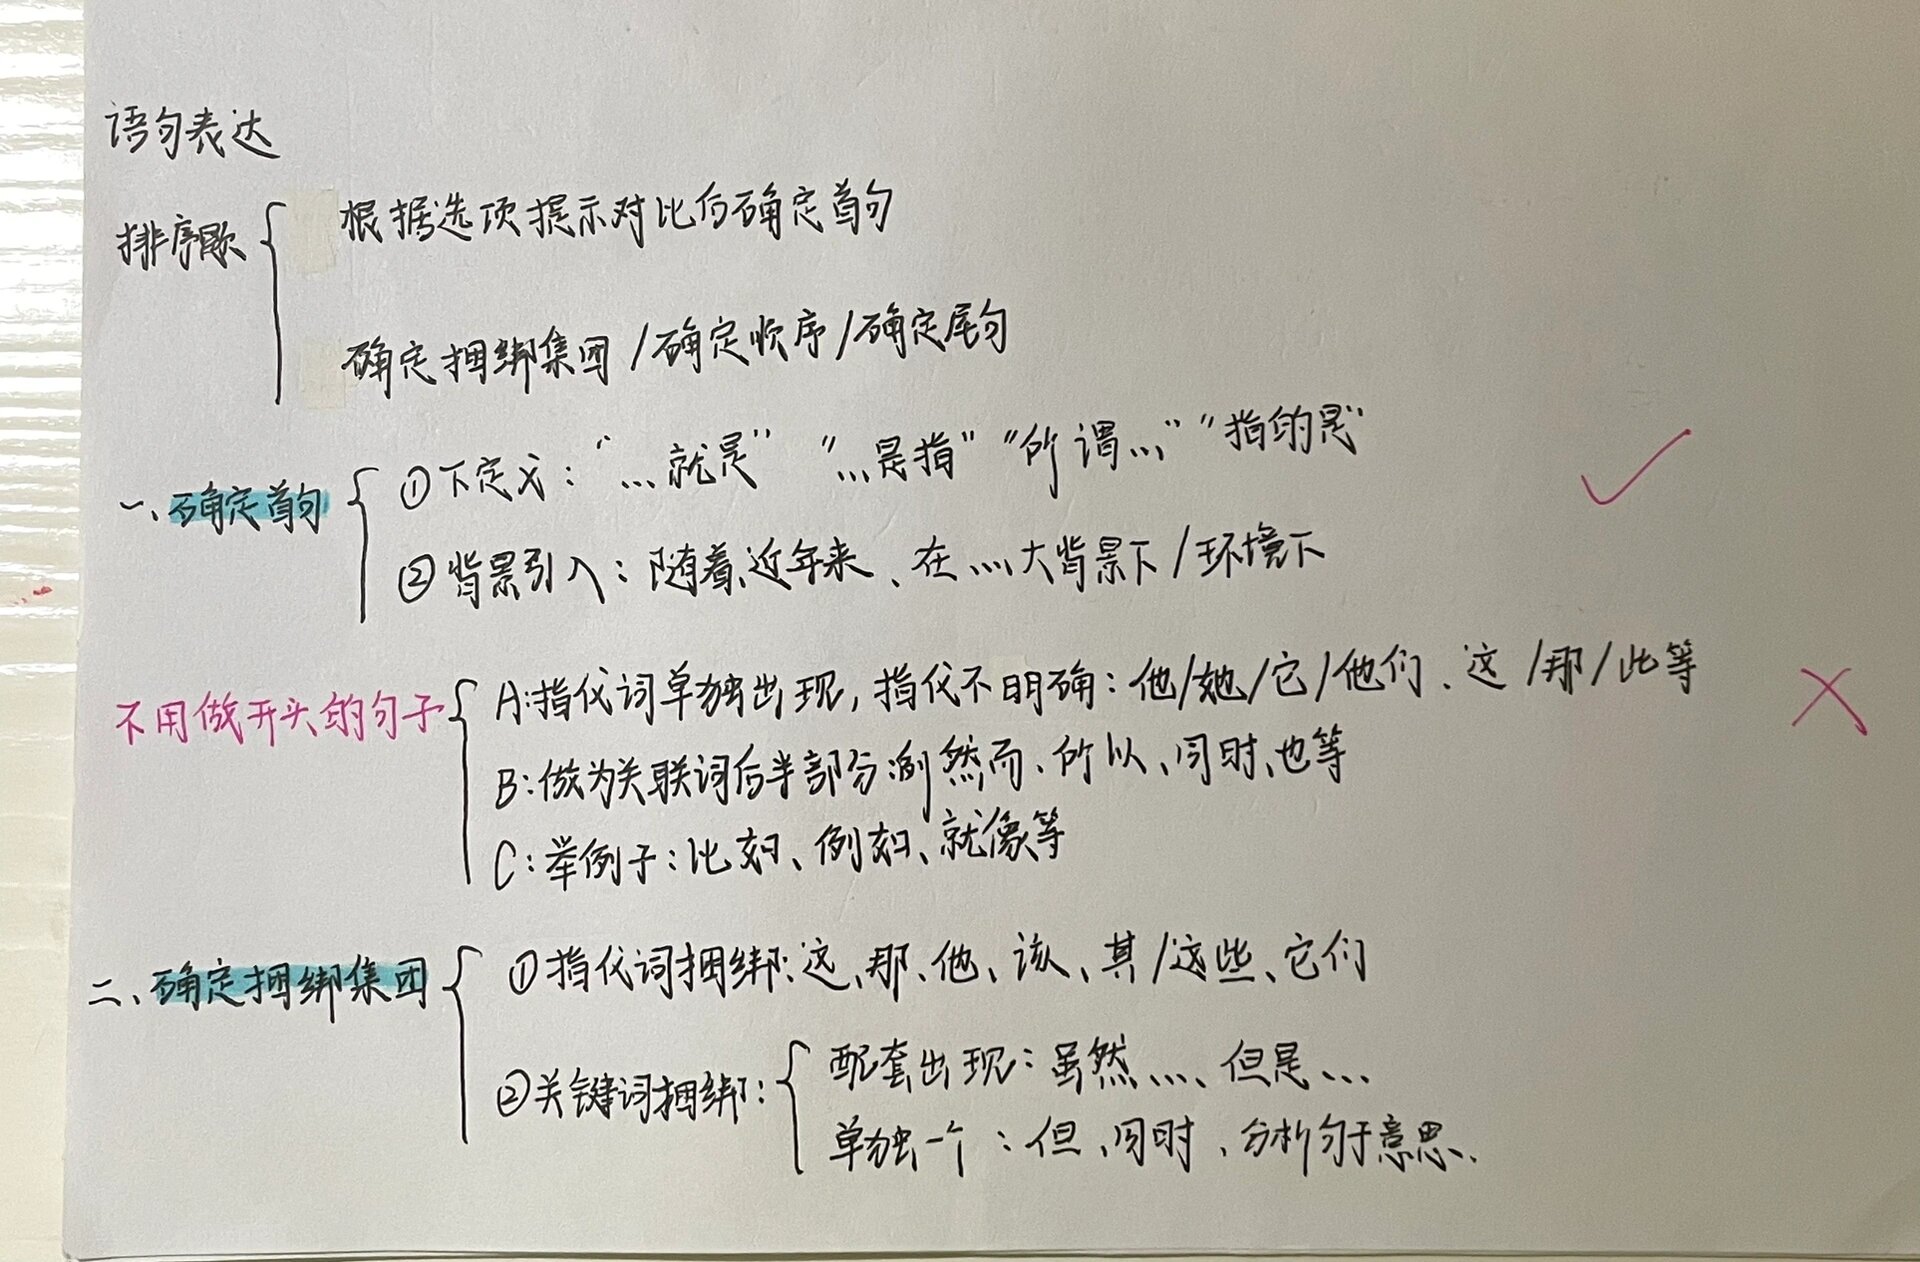 语句表达
排序题
根据选项提示对比后确定首句
确定捆绑集团/确定顺序/确定尾句
一、确定首句
①下定义:“...就是” “...是指” “所谓...” “指的是”
②背景引入:随着、近年来、在...大背景下/环境下
不用做开头的句子
A:指代词单独出现,指代不明确:他/她/它/他们、这/那/此等
B:做为关联词后半部分:例然而、所以、同时、也等
C:举例子:比如、例如、就像等
二、确定捆绑集团
①指代词捆绑:这、那、他、该、其/这些、它们
②关键词捆绑:
配套出现:虽然...、但是...
单独一个:但、同时、分析句子意思.